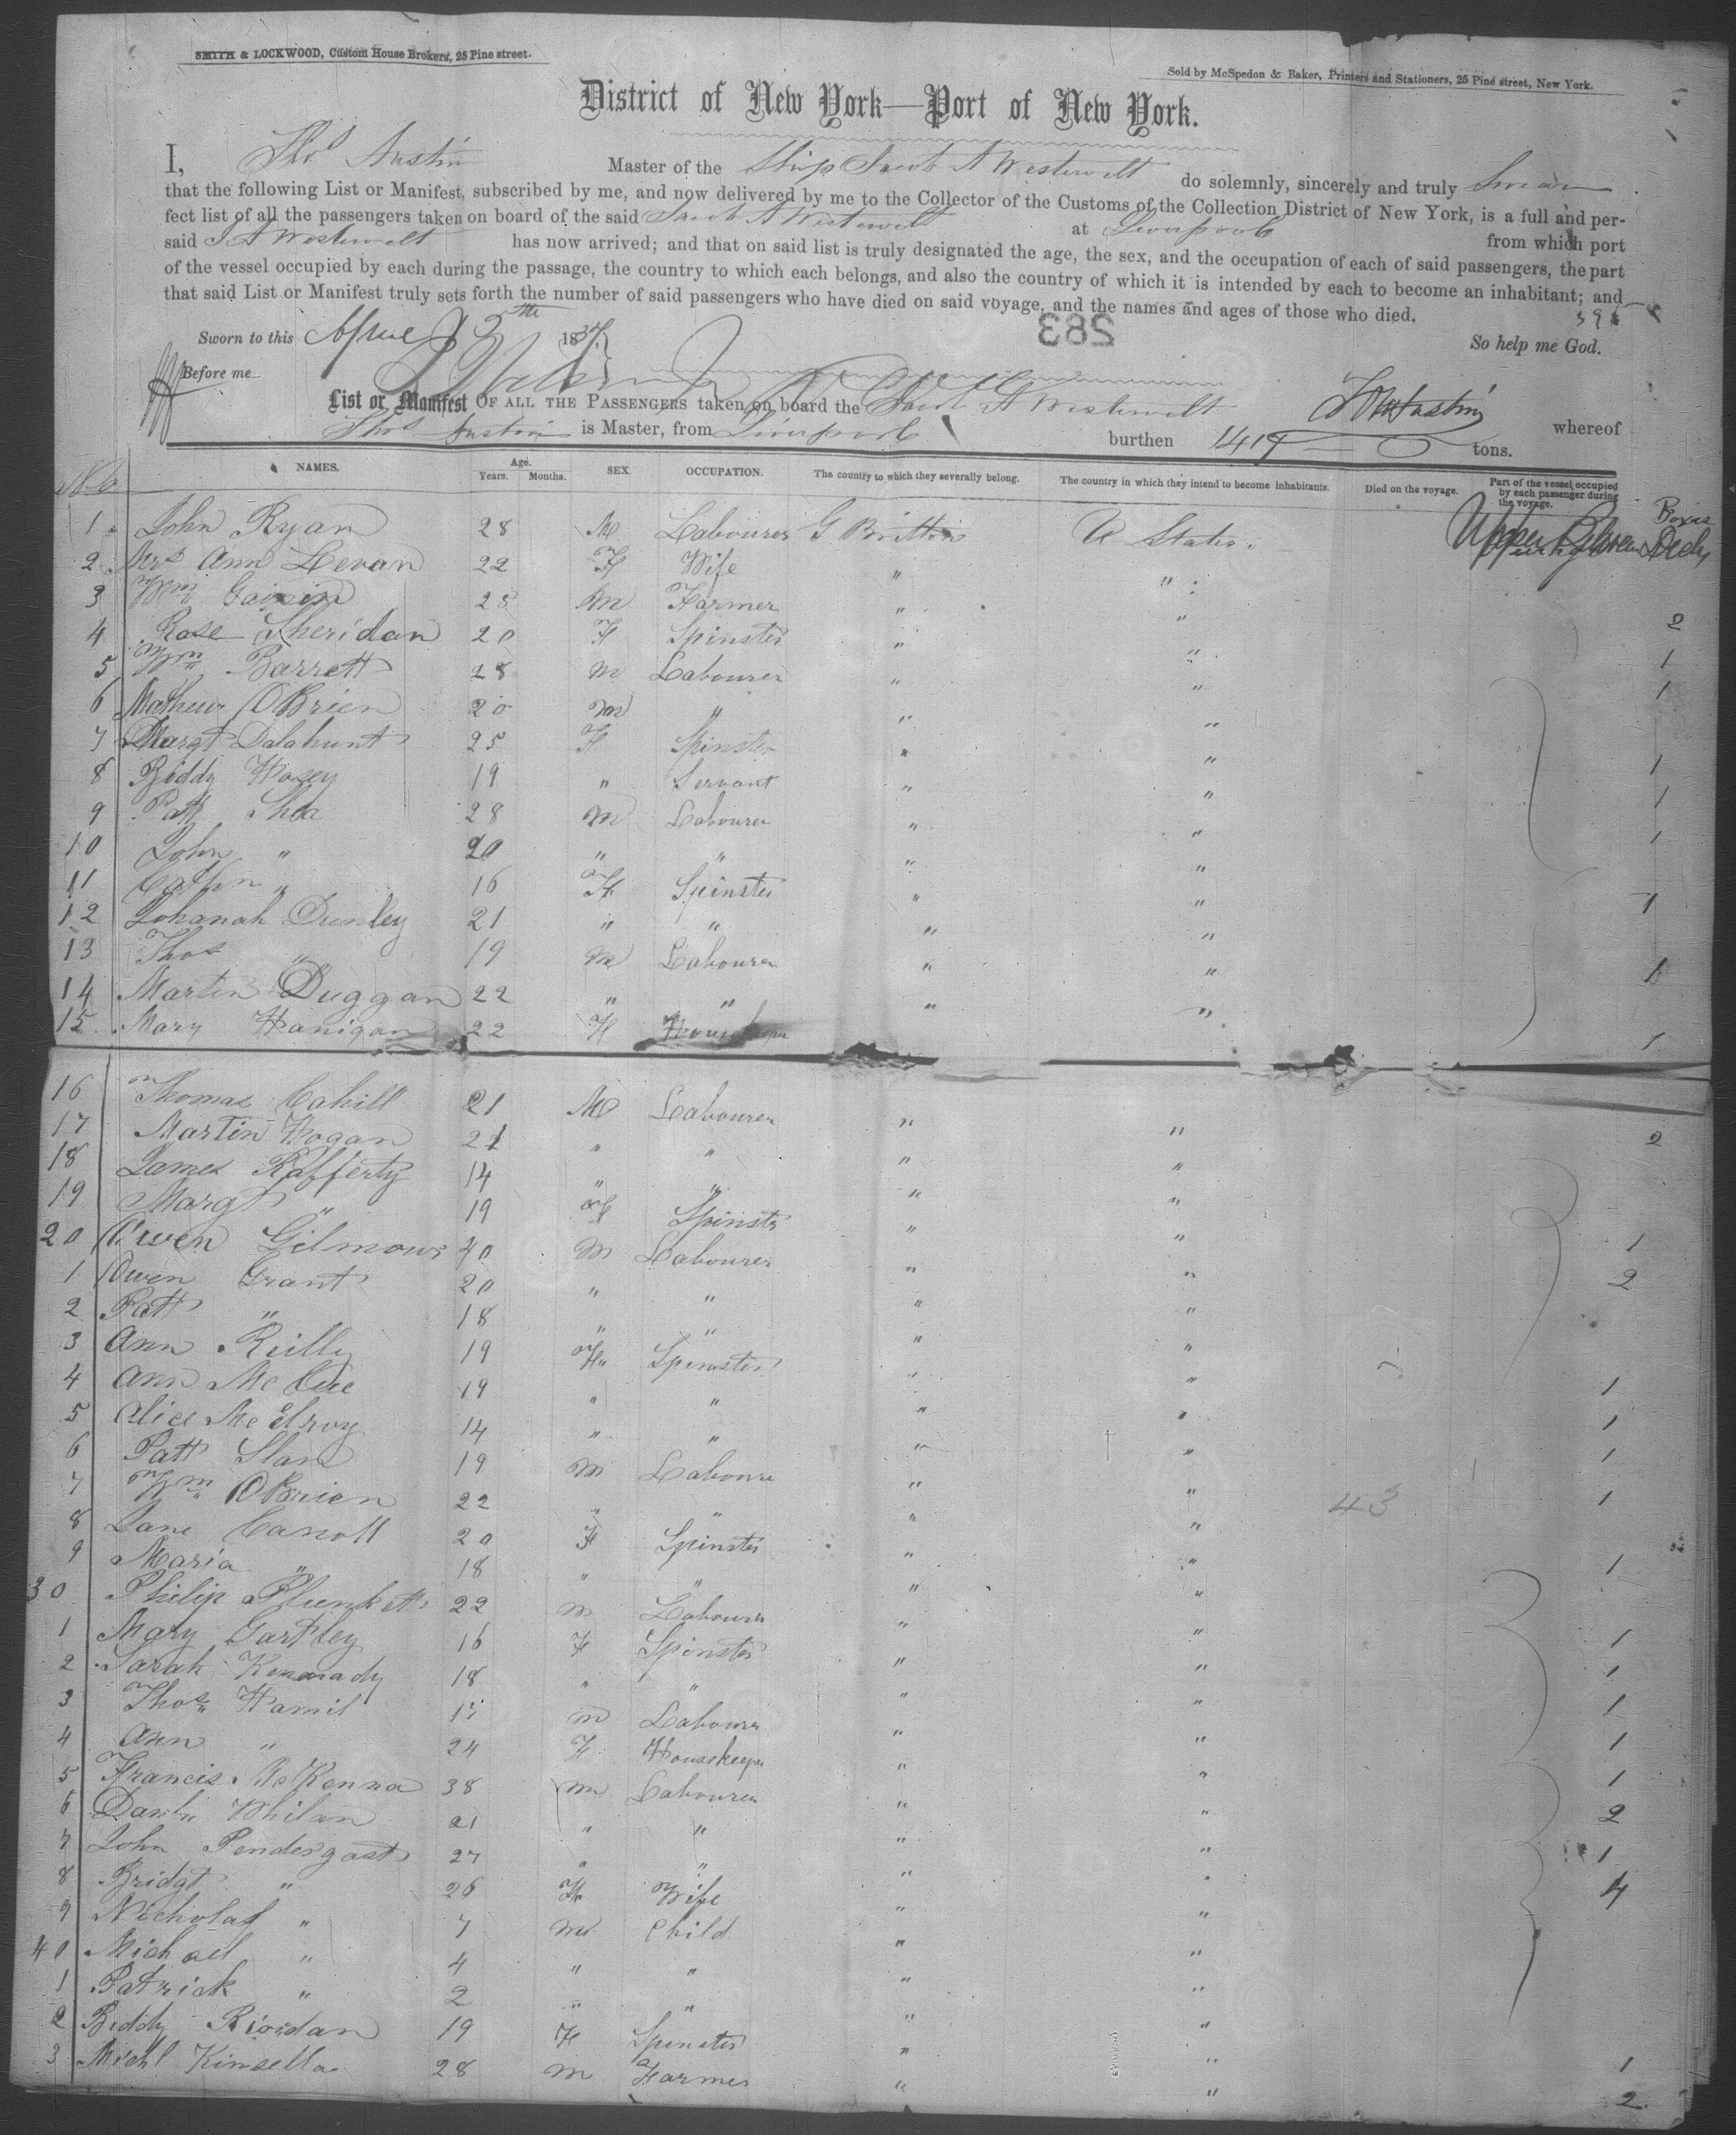 SMITH & LOCKWOOD, Custom House Brokers, 25 Pine street.
Sold by McSpedon & Baker, Printers and Stationers, 25 Pine street, New York.
District of New York—Port of New York.
I, Thos Austin Master of the Ship Jacob A Westervelt do solemnly, sincerely and truly Swear
that the following List or Manifest, subscribed by me, and now delivered by me to the Collector of the Customs of the Collection District of New York, is a full and per-
fect list of all the passengers taken on board of the said Jacob A Westervelt at Liverpool from which port
said J A Westervelt has now arrived; and that on said list is truly designated the age, the sex, and the occupation of each of said passengers, the part
of the vessel occupied by each during the passage, the country to which each belongs, and also the country of which it is intended by each to become an inhabitant; and
that said List or Manifest truly sets forth the number of said passengers who have died on said voyage, and the names and ages of those who died.
Sworn to this 185 283 So help me God.
Before me
List or Manifest OF ALL THE PASSENGERS taken on board the Jacob A Westervelt whereof
Thos Austin is Master, from Liverpool burthen 1419 tons.
No NAMES. Age. Years. Months. SEX. OCCUPATION. The country to which they severally belong. The country in which they intend to become inhabitants. Died on the voyage. Part of the vessel occupied by each passenger during the voyage. Boxes
1 John Ryan 28 M Labourer G Brittain U States. Upper Between Decks
2 Mrs Ann Levan 22 F Wife " "
3 Wm 28 M Farmer " " 2
4 Rose Sheridan 20 F Spinster " " 1
5 Wm Barrett 28 M Labourer " " 1
6 Mathew OBrien 20 M " " "
7 Margt Dalahunt 25 F Spinster " " 1
8 Biddy Hosey 19 " Servant " " 1
9 Patt Shea 28 M Labourer " " 1
10 John " 20 " " " "
11 Cathn " 16 F Spinster " " 1
12 Johanah Dunley 21 " " " "
13 Thos " 19 M Labourer " " 1
14 Martin Duggan 22 " " " "
15 Mary Hanigan 22 F Housekeeper 1
16 Thomas Cahill 21 M Labourer " "
17 Martin Hogan 21 " " " " 2
18 James Rafferty 14 " " " "
19 Margt " 19 F Spinster " "
20 Owen Gilmour 40 M Labourer " " 1
1 Owen Grant 20 " " " " 2
2 Patt " 18 " " " "
3 Ann Reilly 19 F Spinster " "
4 Ann McCue 19 " " " " 1
5 Alice McElroy 14 " " " " 1
6 Patt Slan 19 M Labourer " " 1
7 Wm OBrien 22 " " " " 43 1
8 Jane Carroll 20 F Spinster " "
9 Maria " 18 " " " " 1
30 Philip Plunkett 22 M Labourer " "
1 Mary Gartley 16 F Spinster " " 1
2 Sarah Kennady 18 " " " " 1
3 Thos Hamil M Labourer " " 1
4 Ann " 24 F Housekeeper " " 1
5 Francis McKenna 38 M Labourer " " 1
6 Whilan 21 " " " " 2
7 John Pendergast 27 " " " " 1
8 Bridgt " 26 F Wife " " 4
9 Nicholas " 7 M Child " "
40 Michael " 4 " " " "
1 Patrick " 2 " " " "
2 Biddy Riordan 19 F Spinster " " 1
3 Michl Kinsella 28 M Farmer " " 2